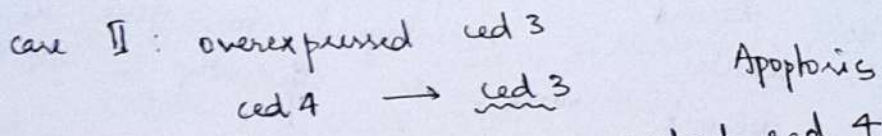 case II : overexpressed ced 3
ced 4 → ced 3 Apoptosis
ced 4